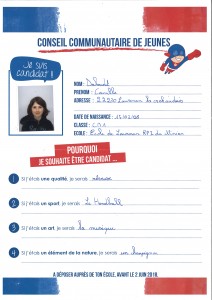 CONSEIL COMMUNAUTAIRE DE JEUNES
Je suis
candidat !
NOM :
PRENOM : Camille
ADRESSE : 22230 Laurenan
DATE DE NAISSANCE :
CLASSE : CM2
ECOLE : Ecole de Laurenan RPI du
POURQUOI
JE SOUHAITE ÊTRE CANDIDAT ...
1 Si j'étais une qualité, je serais :
2 Si j'étais un sport, je serais : Le Handball
3 Si j'étais un art, je serais : la musique
4 Si j'étais un élément de la nature, je serais : un champignon
A DÉPOSER AUPRÈS DE TON ÉCOLE, AVANT LE 2 JUIN 2018.